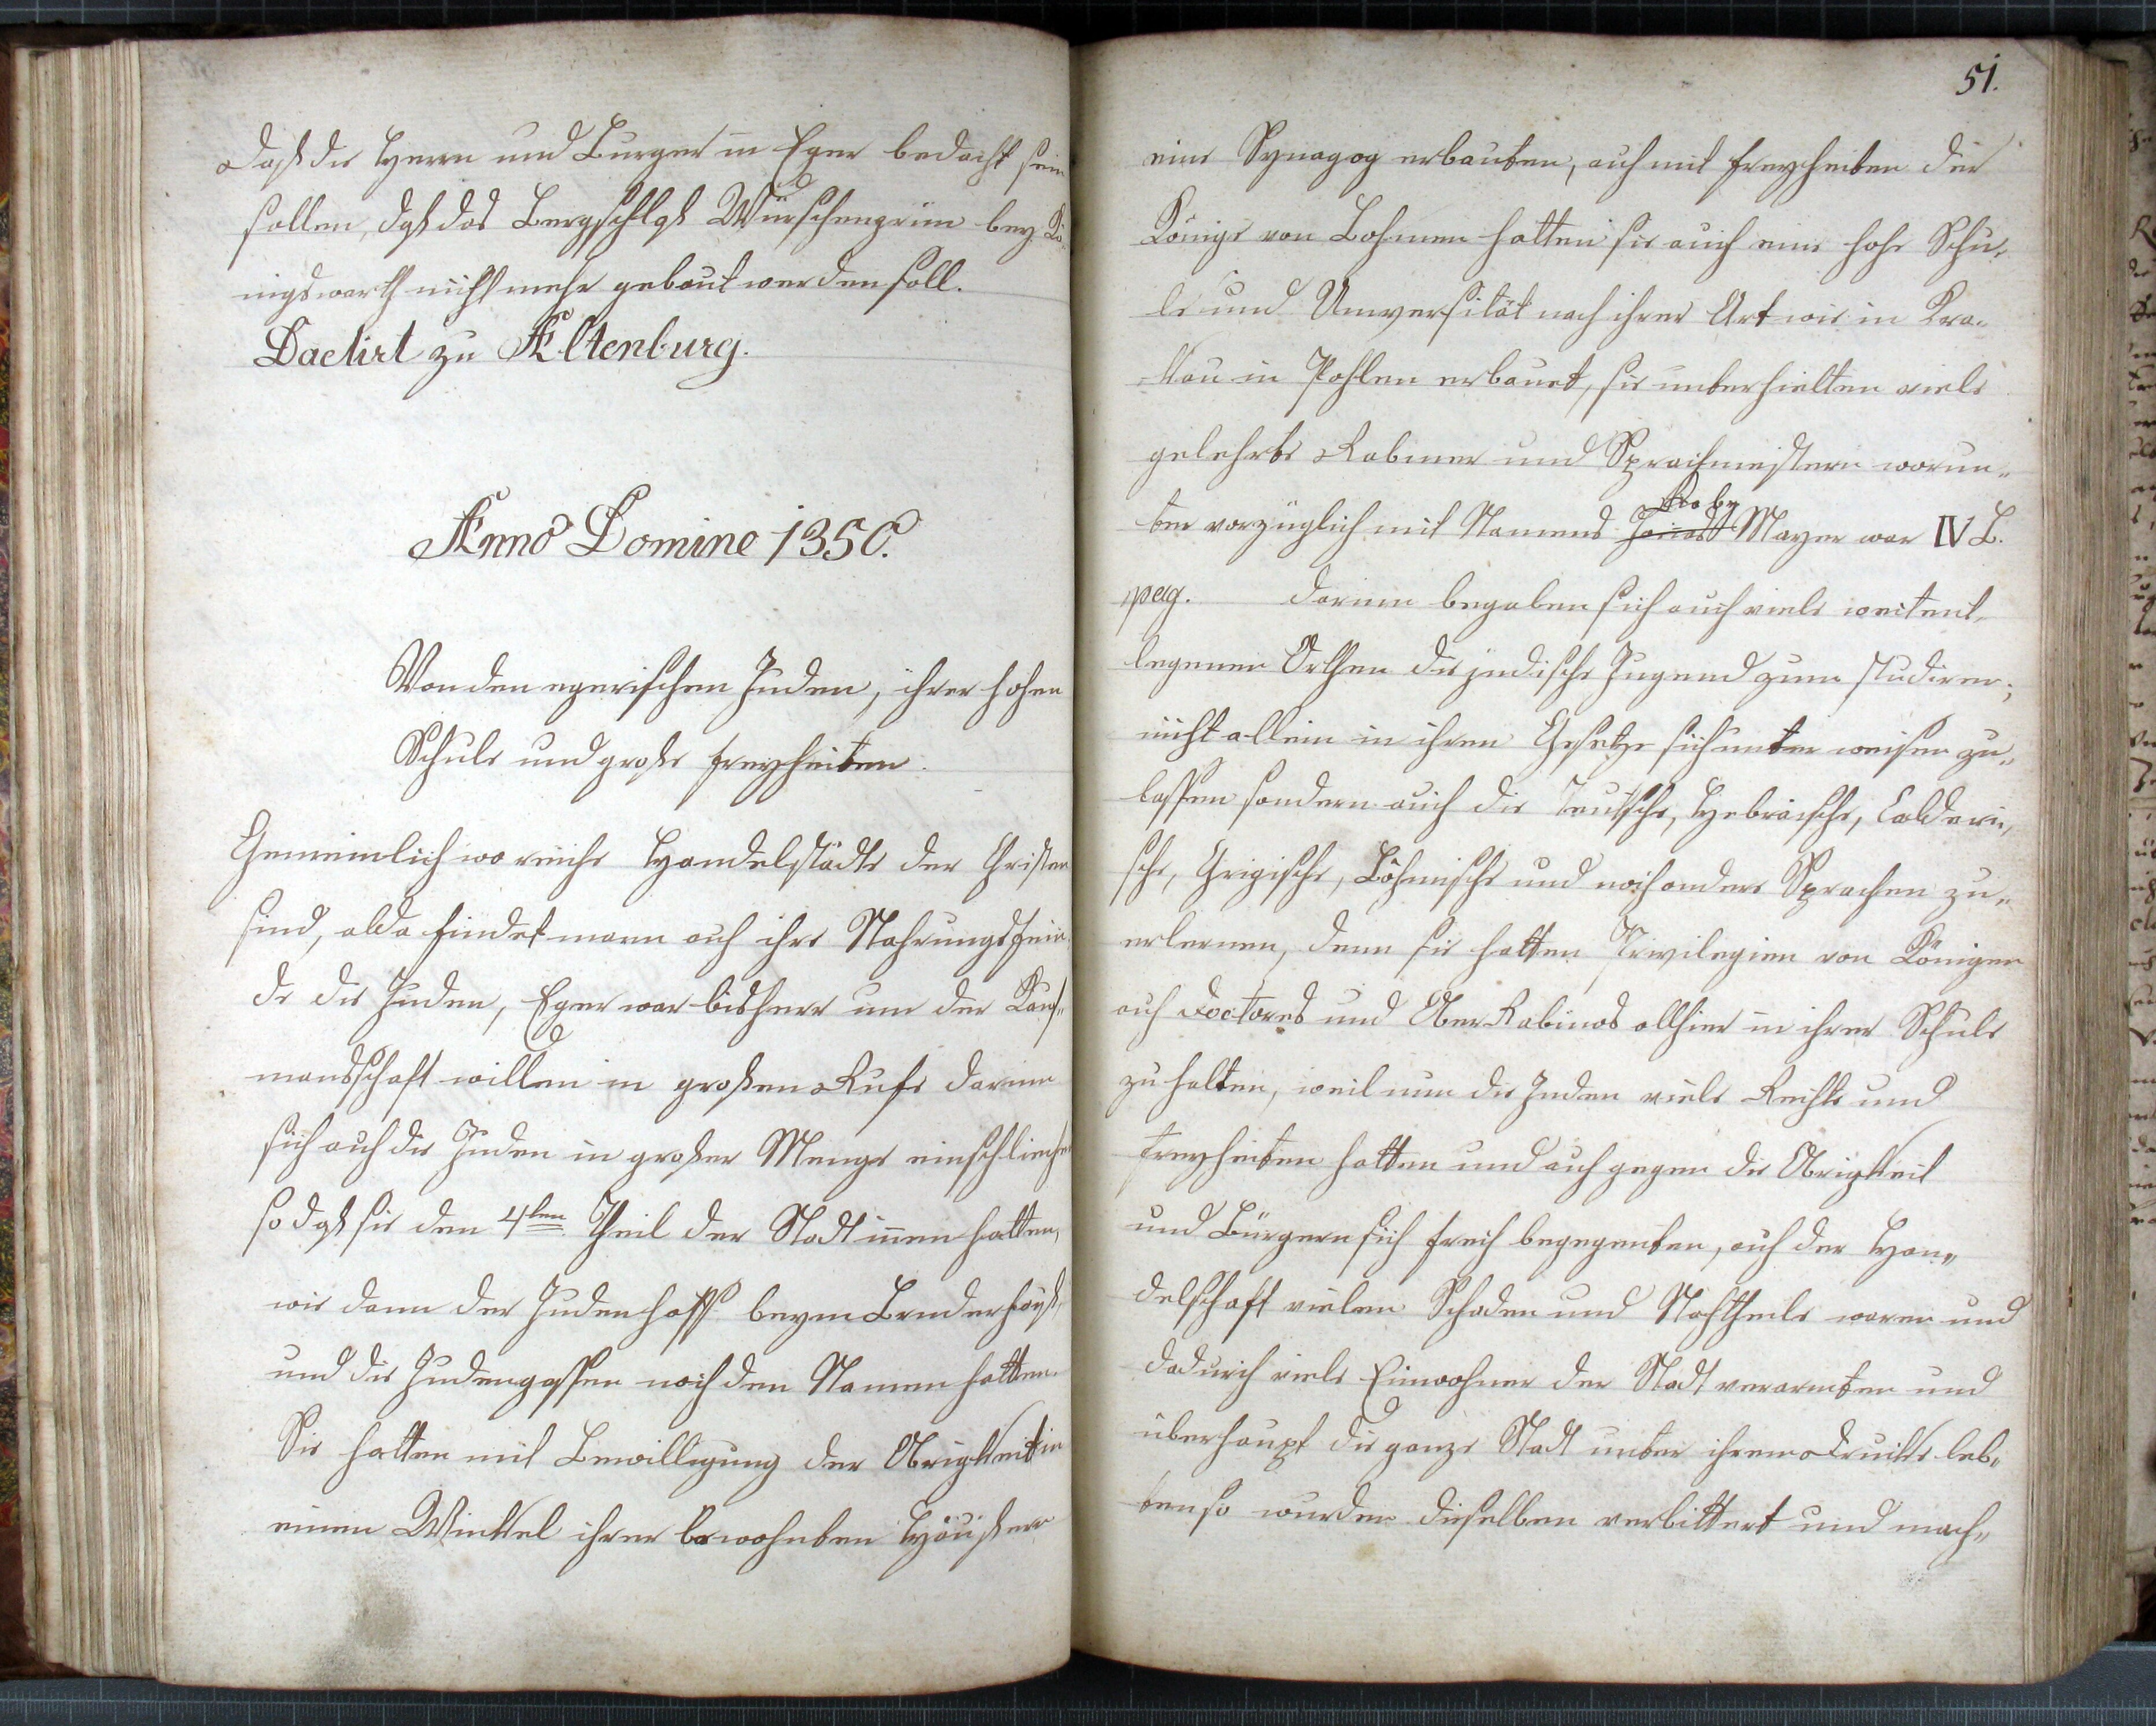 daß die Herrn und Burger in Eger bedacht sein
sollen, dß das Bergschlß Würschengrün bey Kö-
nigswarth nicht mehr gebaut werden soll.
Dactirt zu Altenburg.
Anno Domine 1350.
Von den egerischen Juden, ihrer hohen
Schule und große Freyheiten.
Gemeinlich wo reiche Handelstädte der Christen
sind, alda findet mann auch ihre Nahrungsfein-
de die Juden, Eger war bisherr um der Kauf-
manschaft willen in großen Rufe darum
sich auch die Juden in großer Menge einschliechen
so dß sie den 4ten Theil der Stadt innen hatten,
wie dann der Judenhoff beym Bruderhauß,
und die Judengassen noch den Namen hatten.
Sie hatten mit Bewilligung der Obrigkeit in
einen Winkel ihrer bewohnten Häußern
51.
eine Synagog erbauten, auch mit Freyheiten der
Könige von Bohmen hatten sie auch eine hohe Schu-
le und Unversität nach ihrer Art wie in Kra-
kau in Pohlen erbauet, sie unterhielten viele
gelehrte Rabiner und Sprachmeistern worun-
ter vorzüglich mit Namens Jonas Mayer war IV B.
pag. darum begaben sich auch viele weitent-
legenen Örthen die judische Jugend zum studiren;
nicht allein in ihren Gesetze sich unter weisen zu-
lassen sondern auch die Teutsche, Hebraische, Caldaei-
sche, Grigische, Böhmische und noch andere Sprachen zu-
erlernen, denn sie hatten Privilegien von Königen
auch Doctores und Ober Rabinos allhier in ihrer Schule
zu halten, weil nun die Juden viele Rechte und
Freyheiten hatten und auch gegen die Obrigkeit
und Bürgern sich frech begegenten, auch der Han-
delschaft vielen Schaden und Nachtheile waren und
dadurch viele Einwohner der Stadt verarmten und
überhaupt die ganze Stadt unter ihrem Drucke leb-
ten so wurden dieselben verbittert und mach-